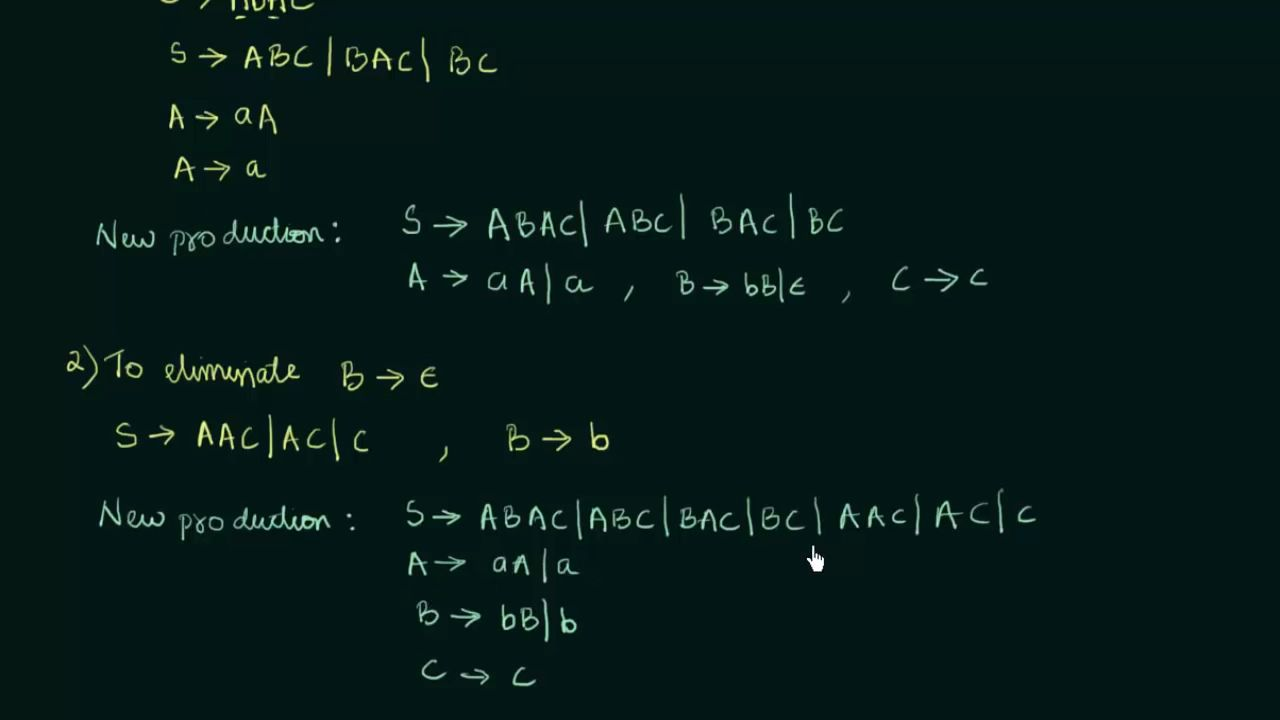 S → ABAC
S → ABC | BAC | BC
A → aA
A → a
New production : S → ABAC | ABC | BAC | BC
A → aA | a , B → bB | ϵ , C → c
2) To eliminate B → ϵ
S → AAC | AC | C , B → b
New production : S → ABAC | ABC | BAC | BC | AAC | AC | C
A → aA | a
B → bB | b
C → c